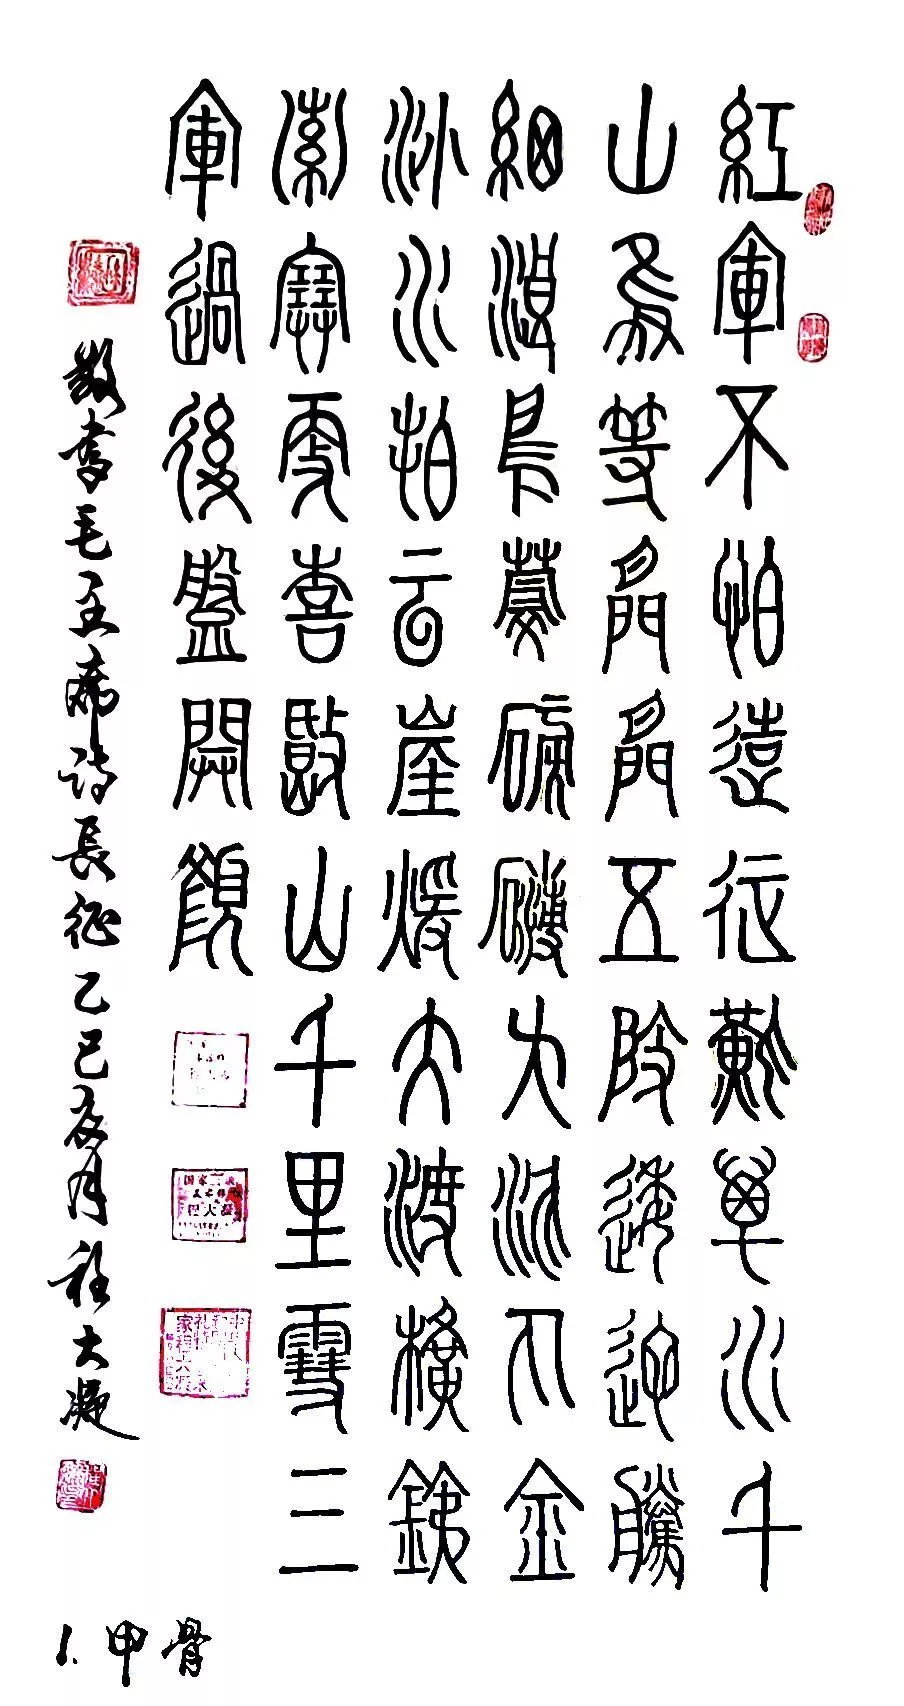 紅軍不怕遠征難萬水千
山等閒閒五逶迤騰
細浪烏蒙磅礴走泥丸金
沙水拍云崖暖大渡橫鐵
索寒更喜岷山千里雪三
軍過後盡開顏
敬書毛主席詩長征乙巳夏月程大凝
1.甲骨